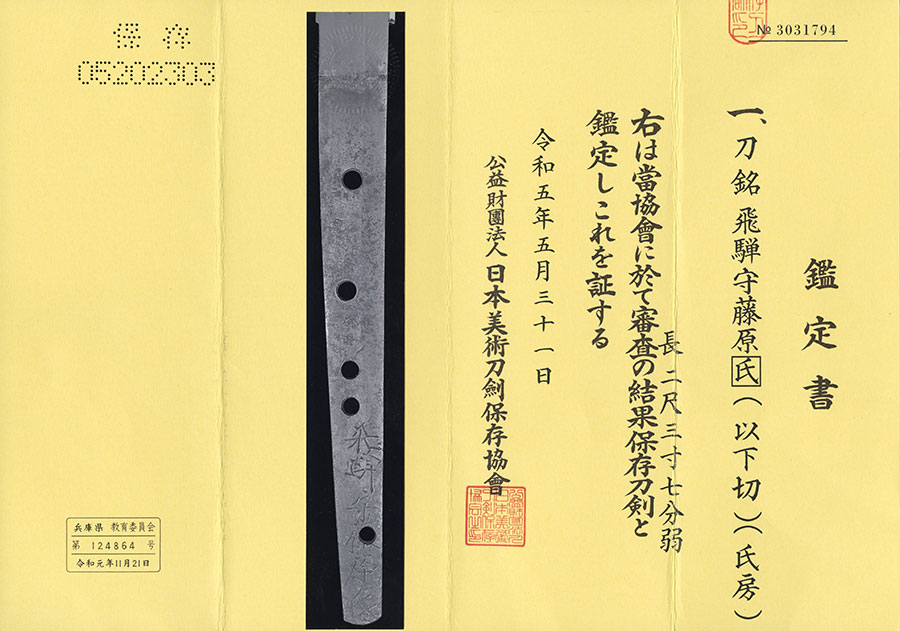 № 3031794
鑑定書
一、刀 銘 飛騨守藤原氏(以下切)(氏房)
長二尺三寸七分弱
右は當協會に於て審査の結果保存刀剣と
鑑定しこれを証する
令和五年五月三十一日
公益財團法人 日本美術刀劍保存協會
保存
05202303
兵庫県 教育委員会
第 124864 号
令和元年11月21日
飛騨守藤原氏